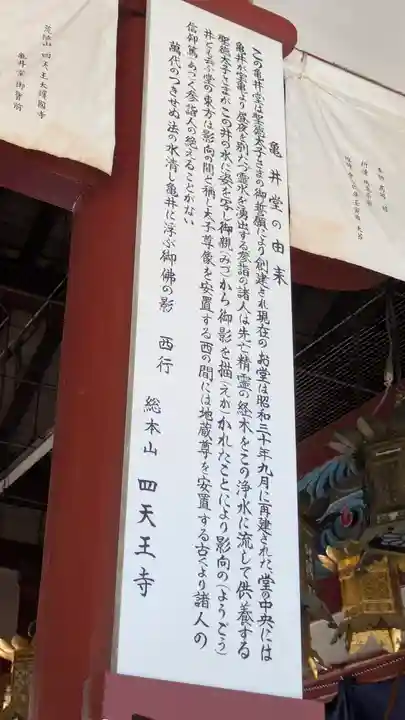 亀井堂の由来
この亀井堂は聖徳太子さまの御誓願により創建され現在のお堂は昭和三十年九月に再建された、堂の中央には
亀井が宝亀より昼夜を別たづ霊水を湧出する参詣の諸人は先亡精霊の経木をこの浄水に流して供養する
聖徳太子さまがこの井の水に姿を写し御親(みづ)から御影を描(えが)かれたことにより影向の(ようごう)
井とも云ふ堂の東方は影向の間と称し太子尊像を安置する西の間には地蔵尊を安置する古くより諸人の
信仰篤あつく参詣人の絶えることがない
萬代のつきせぬ法の水清し亀井に浮ぶ御佛の影　西行
総本山　四天王寺
荒陵山 四天王大護國寺
亀井堂御宝前